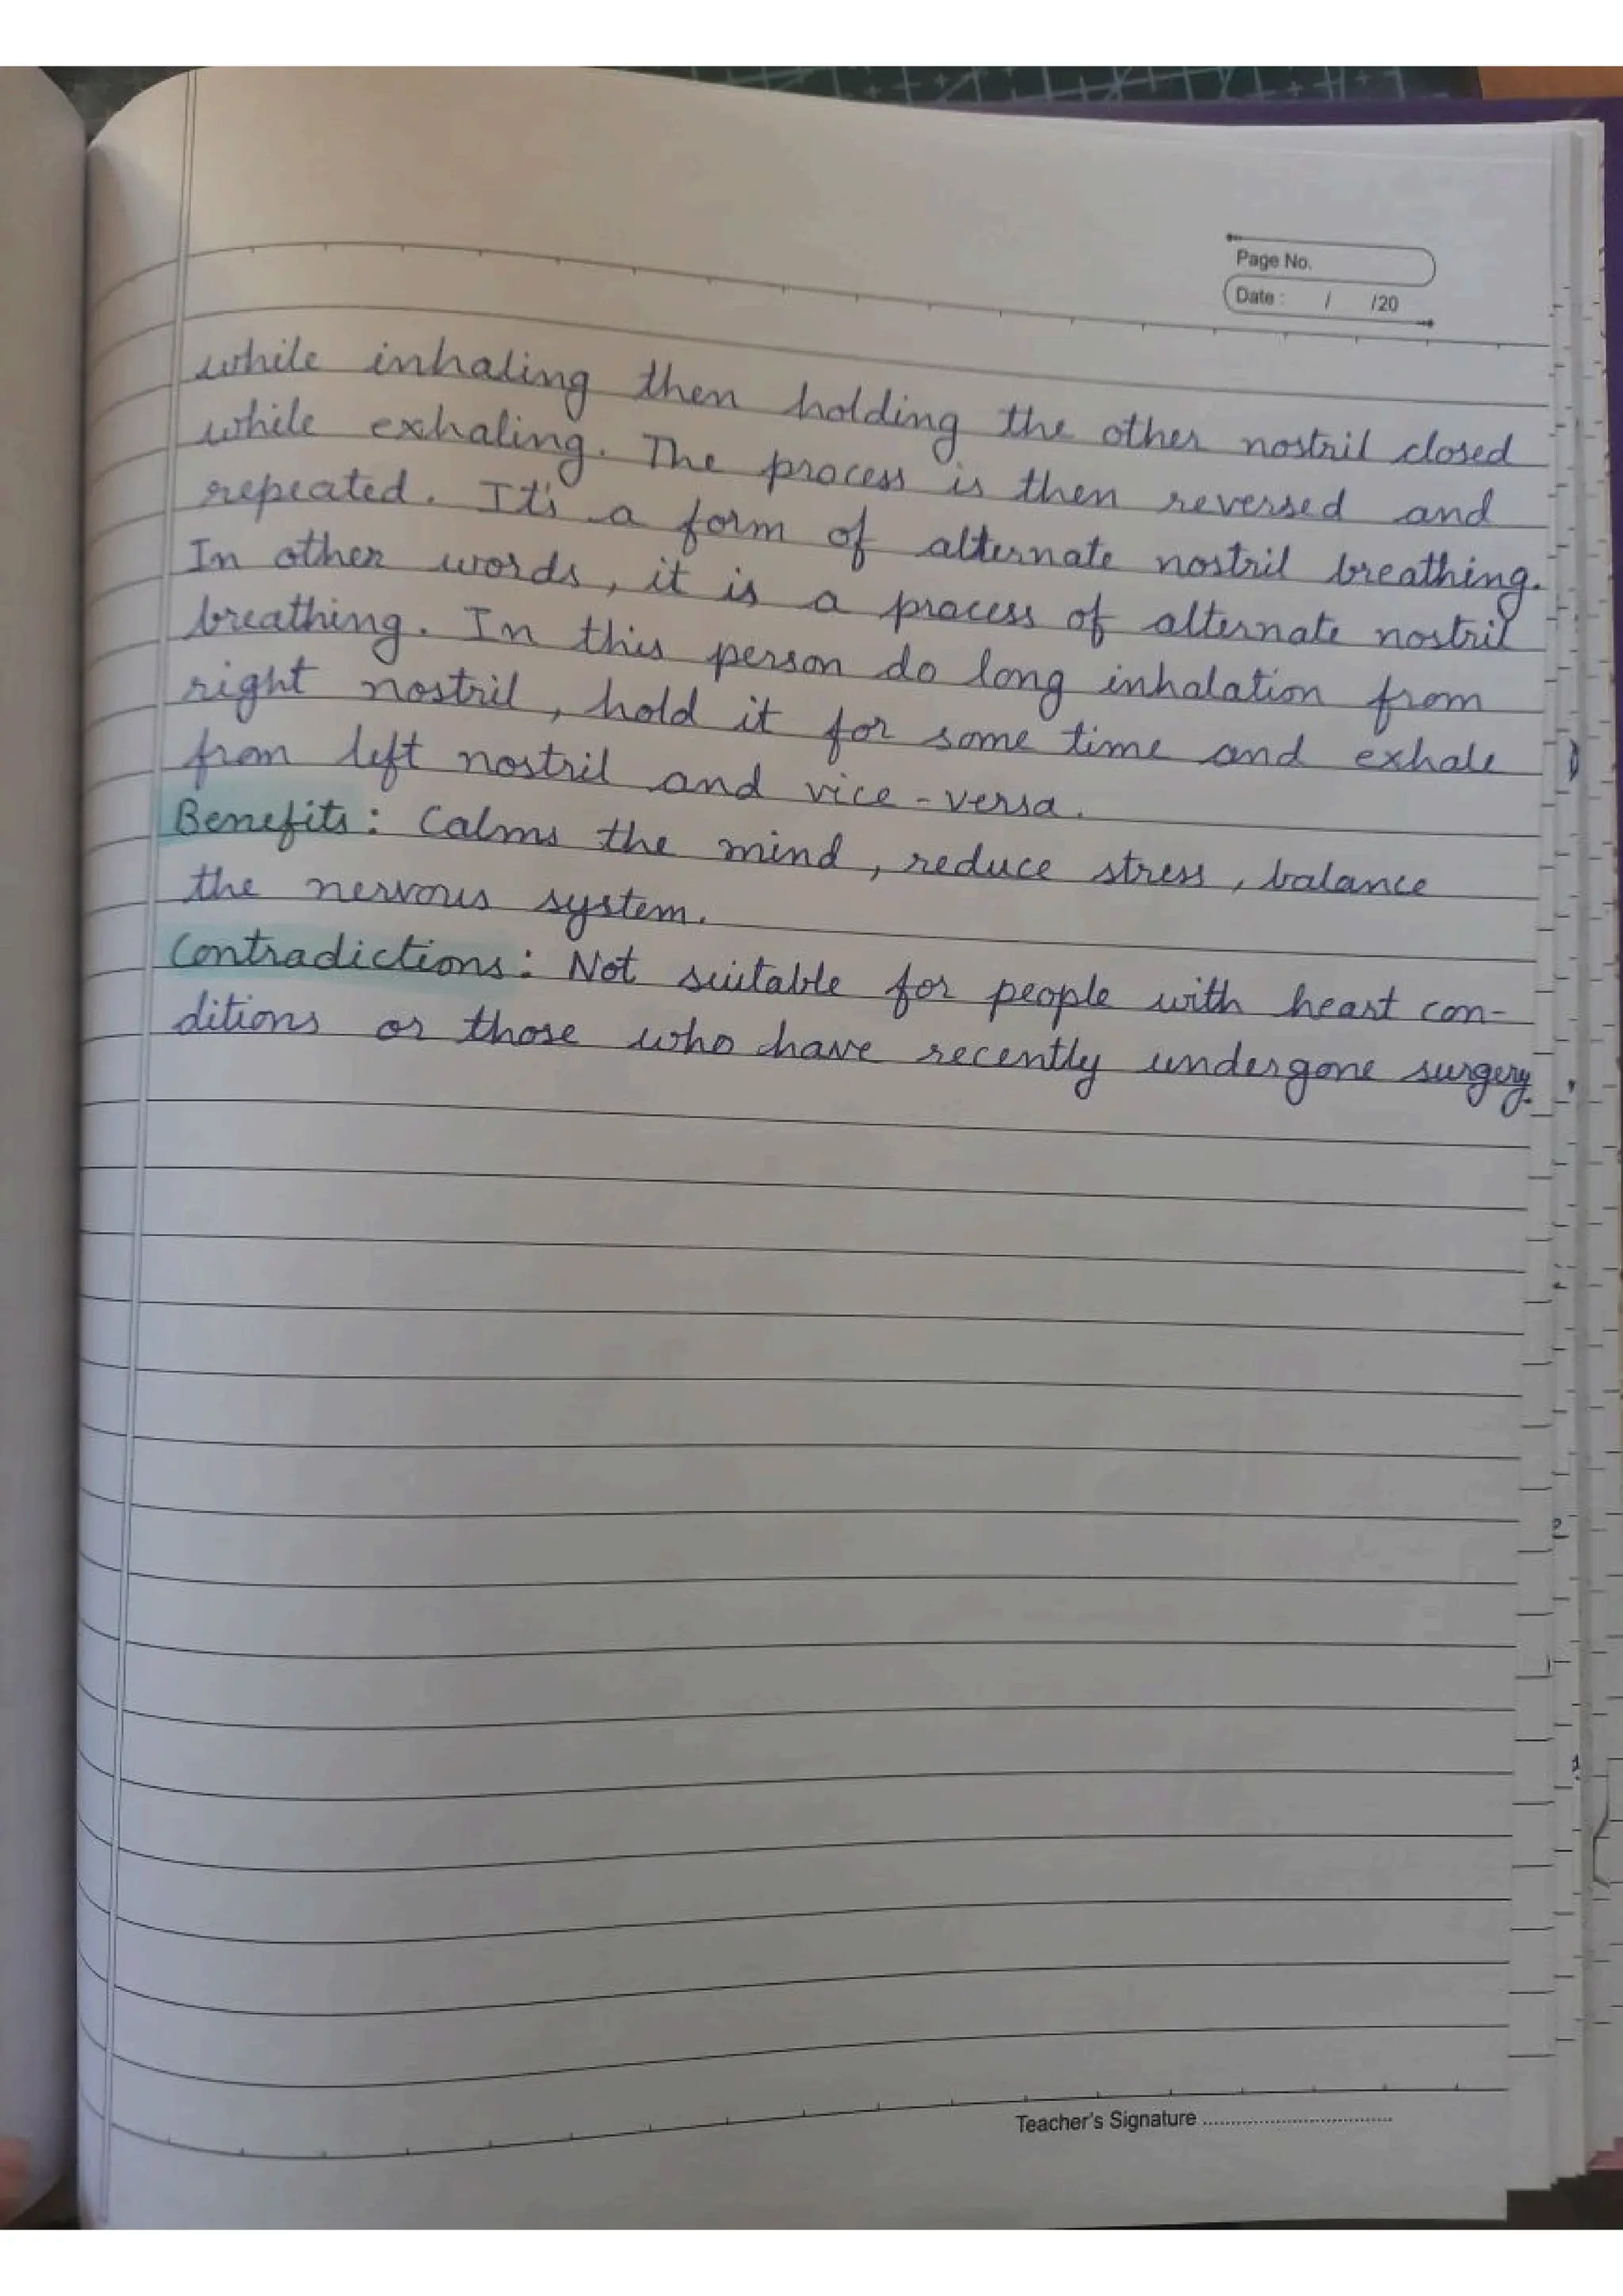 Page No.
Date : / /20
while inhaling then holding the other nostril closed
while exhaling. The process is then reversed and
repeated. It's a form of alternate nostril breathing.
In other words, it is a process of alternate nostril
breathing. In this person do long inhalation from
right nostril, hold it for some time and exhale
from left nostril and vice-versa.
Benefits: Calms the mind, reduce stress, balance
the nervous system.
Contradictions: Not suitable for people with heart con-
ditions or those who have recently undergone surgery.
Teacher's Signature ....................................